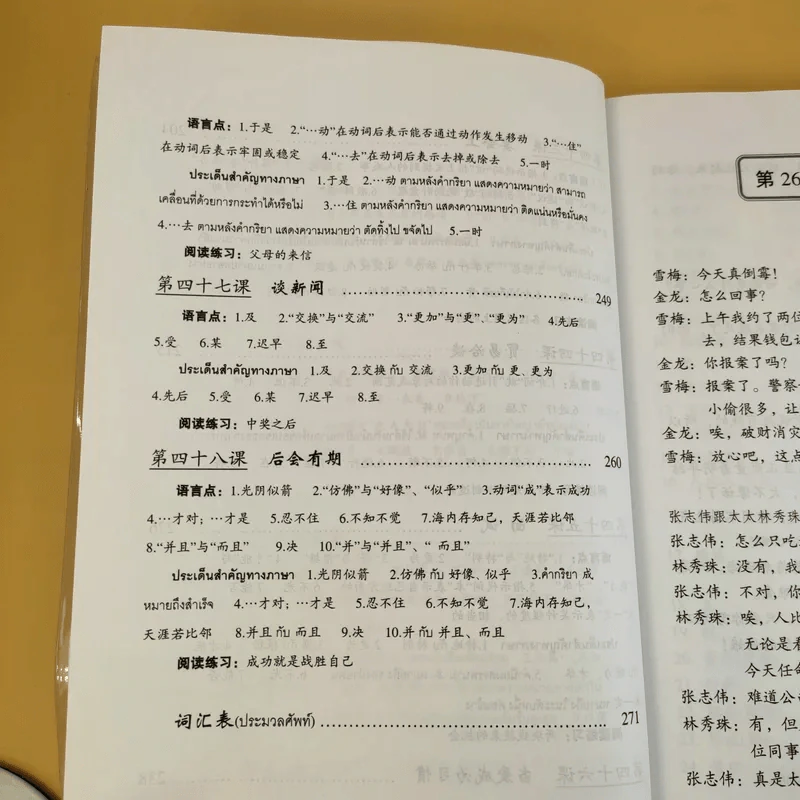 语言点：1.于是 2.“…动”在动词后表示能否通过动作发生移动 3.“…住”
在动词后表示牢固或稳定 4.“…去”在动词后表示去掉或除去 5.一时
ประเด็นสำคัญทางภาษา 1.于是 2.…动 ตามหลังคำกริยา แสดงความหมายว่า สามารถ
เคลื่อนที่ด้วยการกระทำได้หรือไม่ 3.…住 ตามหลังคำกริยา แสดงความหมายว่า ติดแน่นหรือมั่นคง
4.…去 ตามหลังคำกริยา แสดงความหมายว่า ตัดทิ้งไป ขจัดไป 5.一时
阅读练习：父母的来信
第四十七课 谈新闻 ………………………… 249
语言点：1.及 2.“交换”与“交流” 3.“更加”与“更”、“更为” 4.先后
5.受 6.某 7.迟早 8.至
ประเด็นสำคัญทางภาษา 1.及 2.交换 กับ 交流 3.更加 กับ 更、更为
4.先后 5.受 6.某 7.迟早 8.至
阅读练习：中奖之后
第四十八课 后会有期 ………………………… 260
语言点：1.光阴似箭 2.“仿佛”与“好像”、“似乎” 3.动词“成”表示成功
4.…才对；…才是 5.忍不住 6.不知不觉 7.海内存知己，天涯若比邻
8.“并且”与“而且” 9.决 10.“并”与“并且”、“ 而且”
ประเด็นสำคัญทางภาษา 1.光阴似箭 2.仿佛 กับ 好像、似乎 3.คำกริยา 成
หมายถึงสำเร็จ 4.…才对；…才是 5.忍不住 6.不知不觉 7.海内存知己，
天涯若比邻 8.并且 กับ 而且 9.决 10.并 กับ 并且、而且
阅读练习：成功就是战胜自己
词汇表(ประมวลศัพท์) ………………………… 271
第 26
雪梅：今天真倒霉！
金龙：怎么回事？
雪梅：上午我约了两位
去，结果钱包
金龙：你报案了吗？
雪梅：报案了。警察
小偷很多，让
金龙：唉，破财消灾
雪梅：放心吧，这点
张志伟跟太太林秀珠
张志伟：怎么只吃
林秀珠：没有，我
张志伟：不对，你
林秀珠：唉，人比
无论是看
今天任命
张志伟：难道公
林秀珠：有，但
位同事
张志伟：真是太